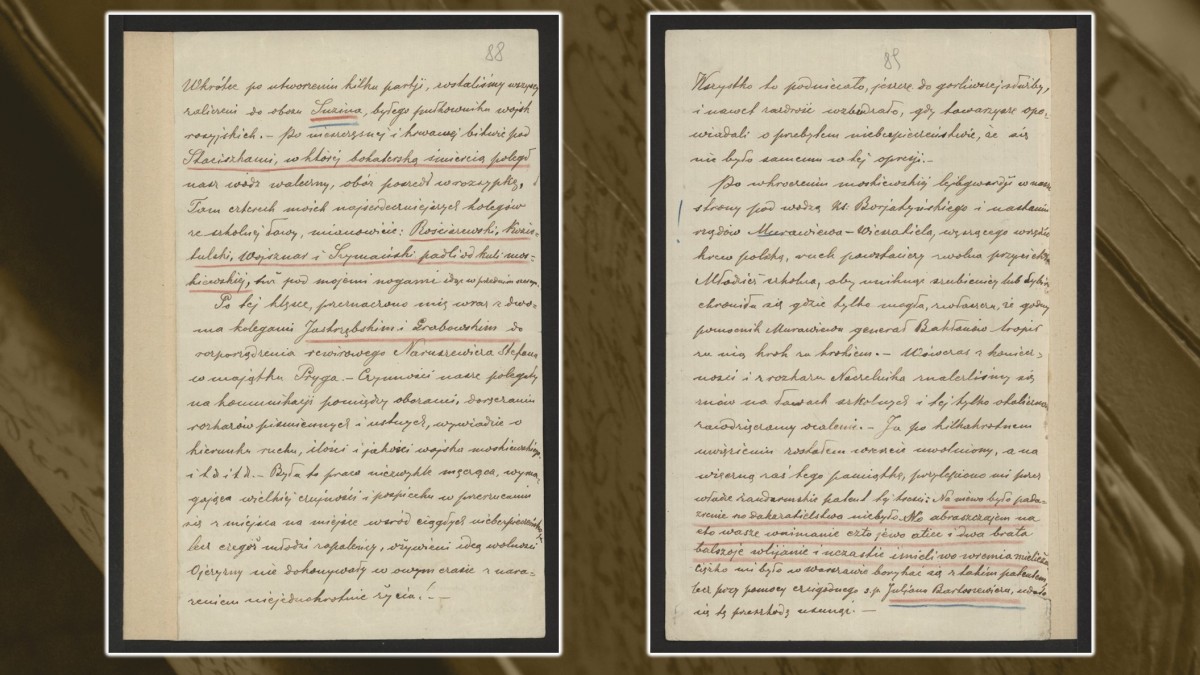 88
Wkrótce po utworzeniu kilku partji, zostaliśmy wszyscy
zaliczeni do obozu Suzina, byłego pułkownika wojsk
rosyjskich. – Po nieszczęsnej i krwawej bitwie pod
Staciszkami, w której bohaterską śmiercią poległ
nasz wódz waleczny, obóz poszedł w rozsypkę,
Tam czterech moich najserdeczniejszych kolegów
ze szkolnej ławy, mianowicie: Rościszewski, Kozio-
tulski, Wojsznar i Szymański padli od kuli mos-
kiewskiej, tuż pod mojemi nogami
Po tej klęsce, przeznaczono mię wraz z dwo-
ma kolegami Jastrzębskim i Grabowskim do
rozporządzenia rewirowego Naruszewicza Stefana
w majątku Pryga. – Czynności nasze polegały
na komunikacji pomiędzy obozami, doręczaniu
rozkazów piśmiennych i ustnych, wywiadzie o
kierunku ruchu, ilości i jakości wojska moskiewskiego
i t.d i t.d. – Była to praca niezwykle męcząca, wyma-
gająca wielkiej czujności i pospiechu w przerzucaniu
się z miejsca na miejsce wśród ciągłych niebezpieczeństw
lecz czegóż młodzi zapaleńcy, ożywieni ideą wolności
Ojczyzny nie dokonywały w owym czasie z nara-
żeniem niejednokrotnie życia! –
89
Wszystko to podniecało, jeszcze do gorliwszej służby,
i nawet zazdrość wzbudzało, gdy towarzysze opo-
wiadali o przebytem niebezpieczeństwie, że się
nie było samemu w tej opresji. –
Po wkroczeniu moskiewskiej lejbgwardji w nasze
strony pod wodzą ks. Borjatyńskiego i nastaniu
rządów Murawiewa – Wieszatiela, wszęcego
krew polską, ruch powstańczy zwolna przycichł
Młodzież szkolna, aby uniknąć szubienicy lub Sybiru
chroniła się gdzie tylko mogła, zwłaszcza, że godny
pomocnik Murawiewa generał Bakłanow tropił
za nią krok za krokiem. – Wówczas z koniecz-
ności i z rozkazu Naczelnika znaleźliśmy się
znów na ławach szkolnych i tej tylko okoliczności
zawdzięczamy ocalenie. – Ja po kilkakrotnem
uwięzieniu zostałem wreszcie uwolniony, a na
wieczną zaś tego pamiątkę, przyłożono mi przez
władze żandarmskie patent tej treści: Na niewo było poda-
zrenie no dakazatielstwa niebyło No abraszczajem na
eto wasze wnimanie czto jewo atiec i dwa brata
balszoje wlijanie i uczastie imieli wo wremia miatieża
Ciężko mi było w Warszawie borykać się z takim patentem
lecz przy pomocy czcigodnego ś.p. Juljana Bartoszewicza, udało
się tę przeszkodę usunąć. –